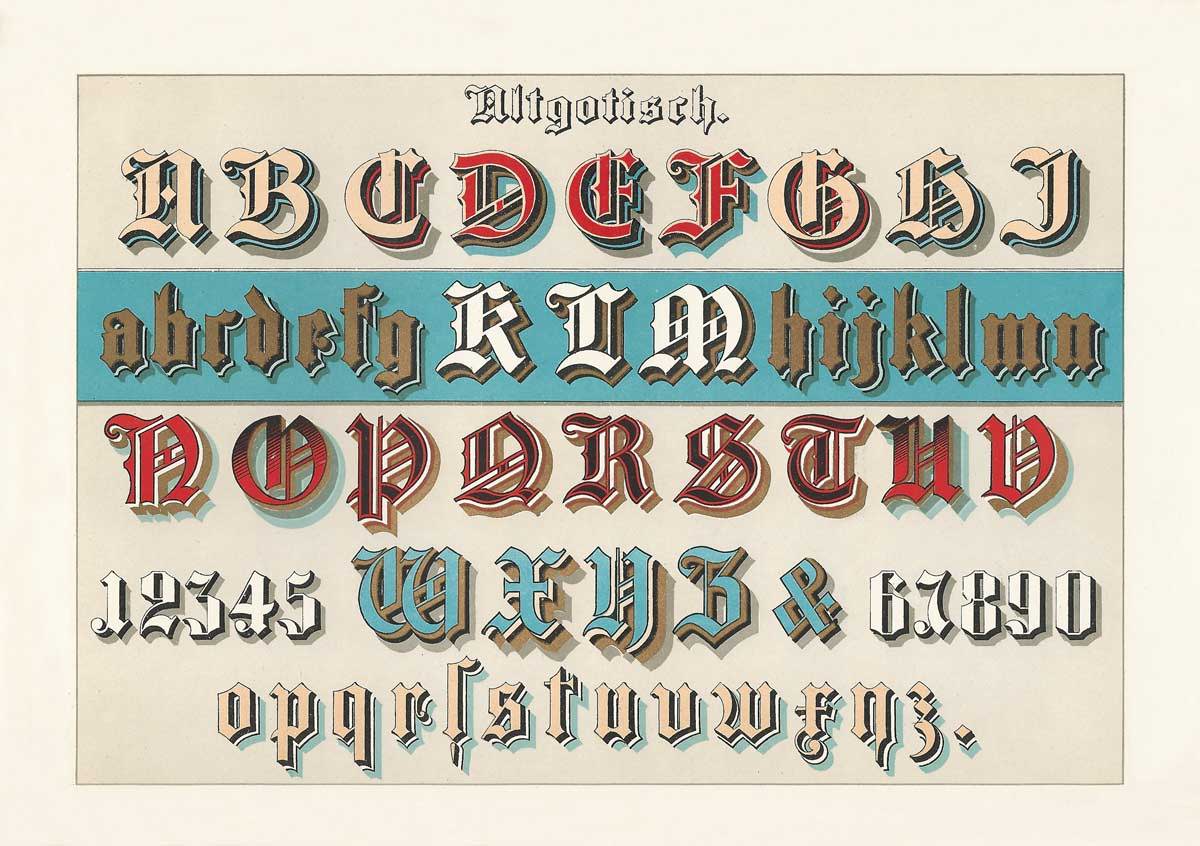 Altgotisch.
A B C D E F G H I
a b c d e f g K L M h i j k l m n
N O P Q R S T U V
1 2 3 4 5 W X Y Z & 6 7 8 9 0
o p q r ſ s t u v w x y z .